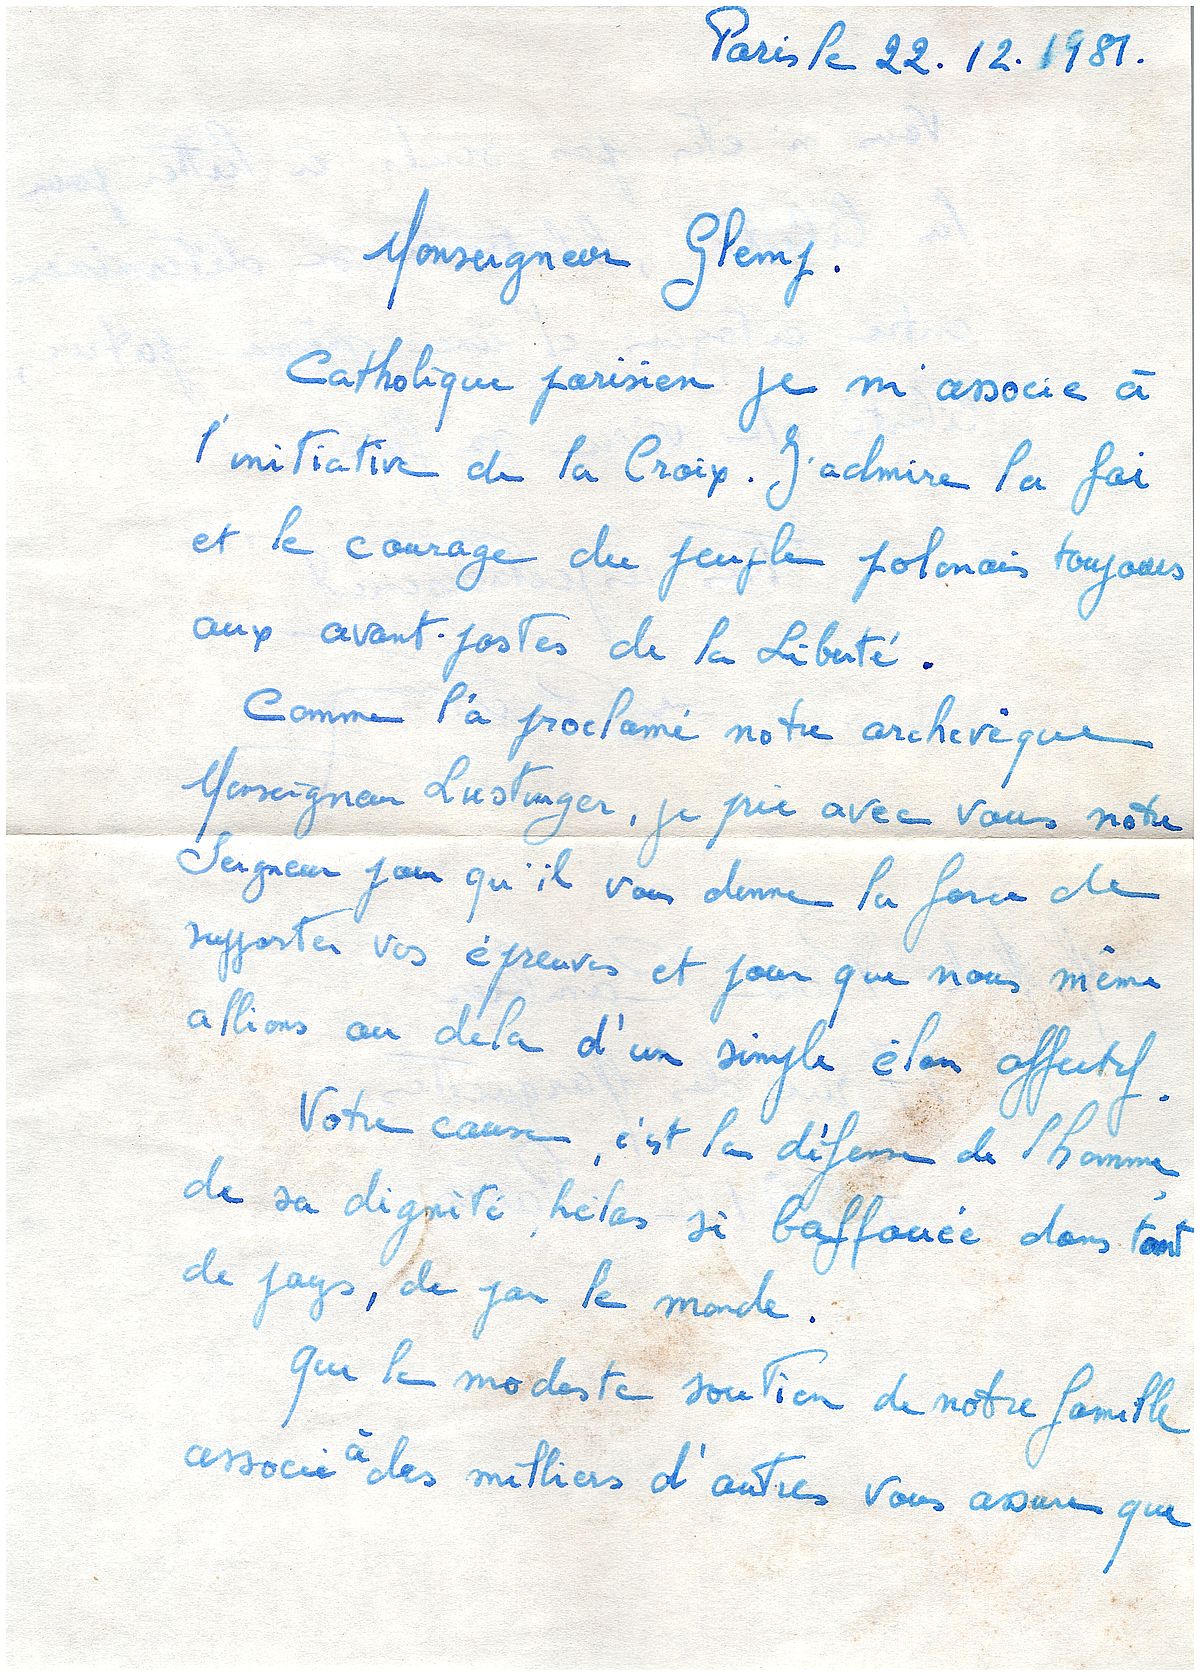 Paris le 22.12.1981.
Monseigneur Glemp.
Catholique parisien je m'associe à
l'initiative de la Croix. J'admire la foi
et le courage du peuple polonais toujours
aux avant-postes de la Liberté.
Comme l'a proclamé notre archevêque
Monseigneur Lustinger, je prie avec vous notre
Seigneur pour qu'il vous donne la force de
supporter vos épreuves et pour que nous même
allions au delà d'un simple élan affectif.
Votre cause, c'est la défense de l'homme,
de sa dignité, hélas si baffouée dans tant
de pays, de par le monde.
Que le modeste soutien de notre famille
associé à des milliers d'autres vous assure que